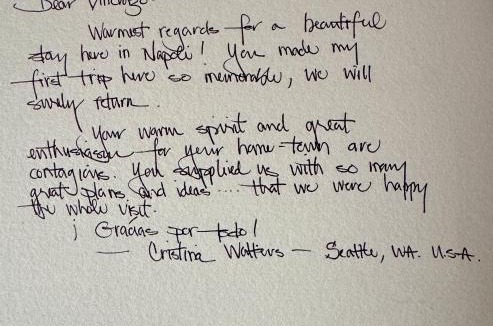 Dear Vincenzo.
Warmest regards for a beautiful
stay here in Napoli! You made my
first trip here so memorable, we will
surely return.
Your warm spirit and great
enthusiasm for your home-town are
contagious. You supplied us with so many
great plans and ideas.... that we were happy
the whole visit.
¡ Gracias por todo!
— Cristina Watters — Seattle, WA. U.S.A.